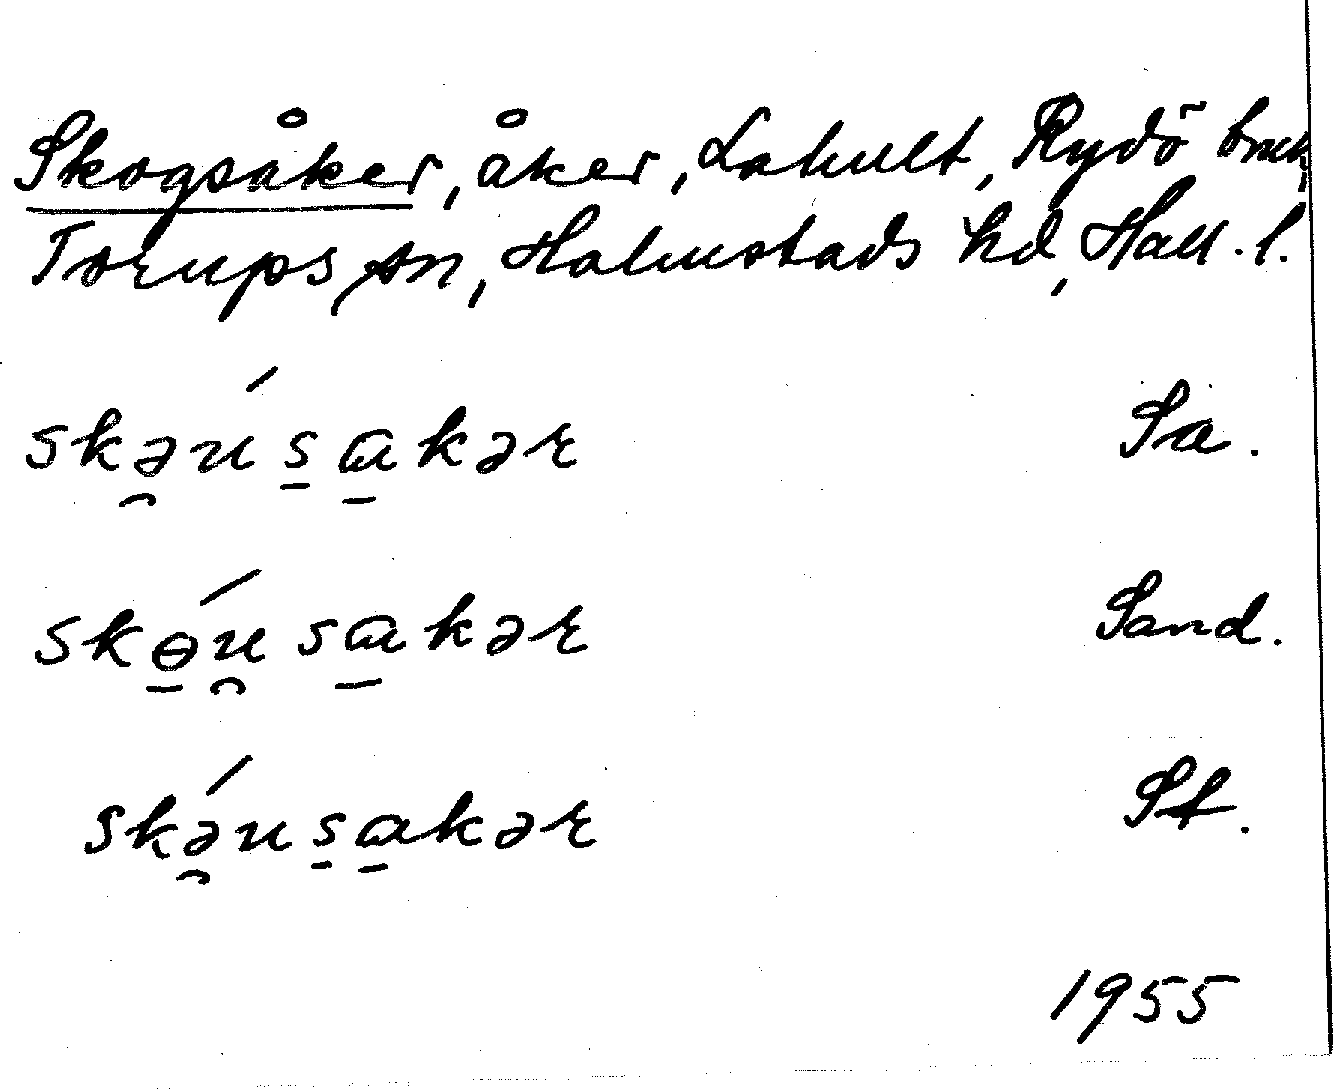 Skogsåker, åker, Lahult, Rydö bruk,
Torups sn, Halmstads hd, Hall. l.
skə̯u´s̠a̠kər Sa.
skɵ̠u̯´sa̠kər Sand.
skə̯´us̠a̠kər St.
1955